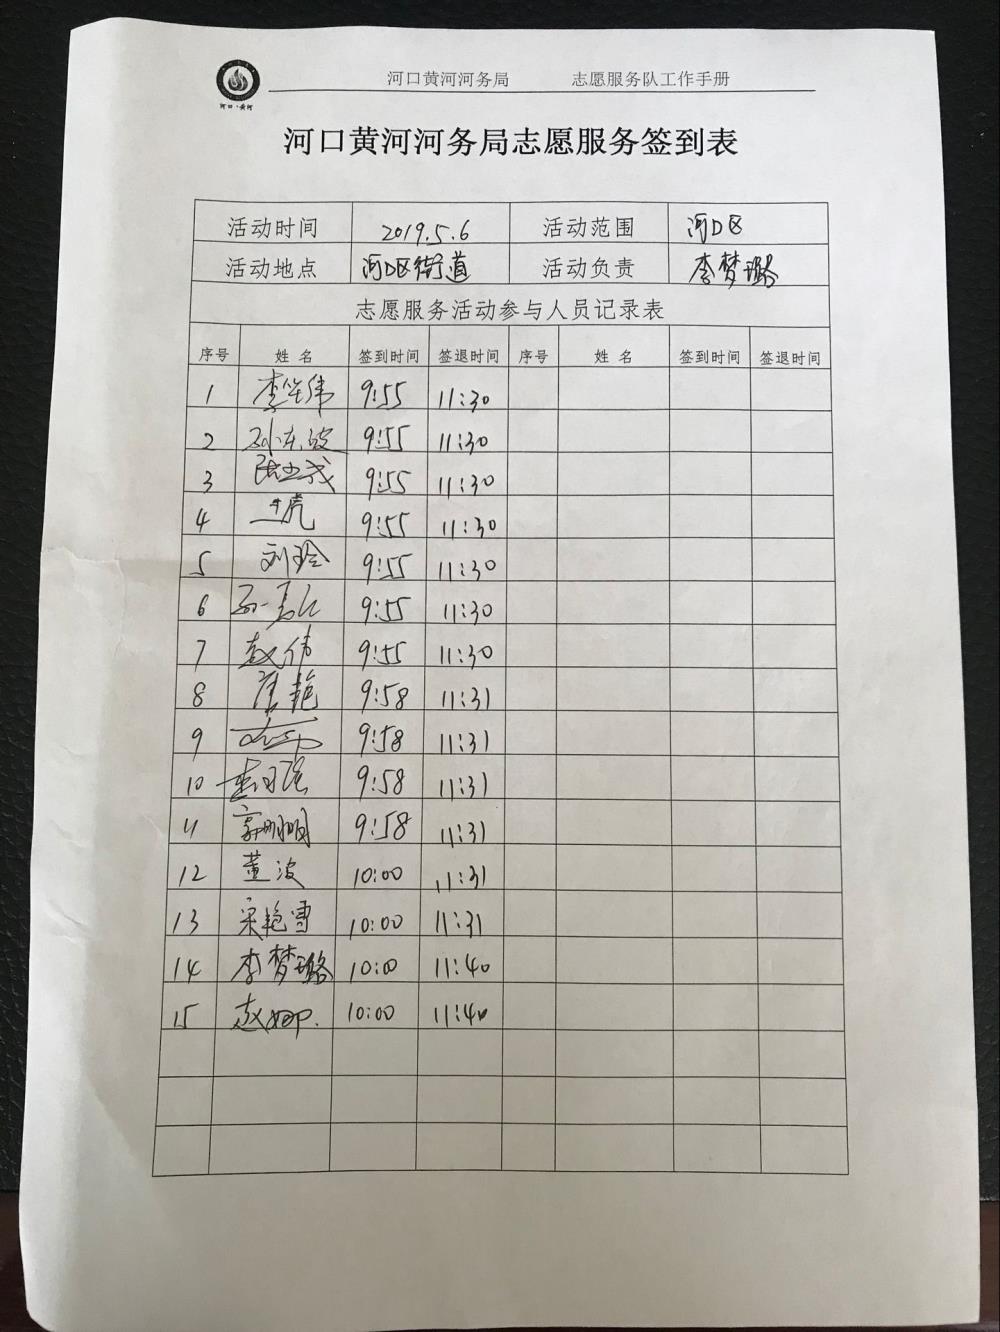 河口·黄河
河口黄河河务局 志愿服务队工作手册
河口黄河河务局志愿服务签到表
活动时间 2019.5.6 活动范围 河口区
活动地点 河口区街道 活动负责 李梦璐
志愿服务活动参与人员记录表
序号 姓名 签到时间 签退时间 序号 姓名 签到时间 签退时间
1 9:55 11:30
2 孙东波 9:55 11:30
3 9:55 11:30
4 9:55 11:30
5 刘玲 9:55 11:30
6 9:55 11:30
7 赵伟 9:55 11:30
8 9:58 11:31
9 9:58 11:31
10 9:58 11:31
11 郭明明 9:58 11:31
12 董波 10:00 11:31
13 宋艳雪 10:00 11:31
14 李梦璐 10:00 11:40
15 赵娜 10:00 11:40